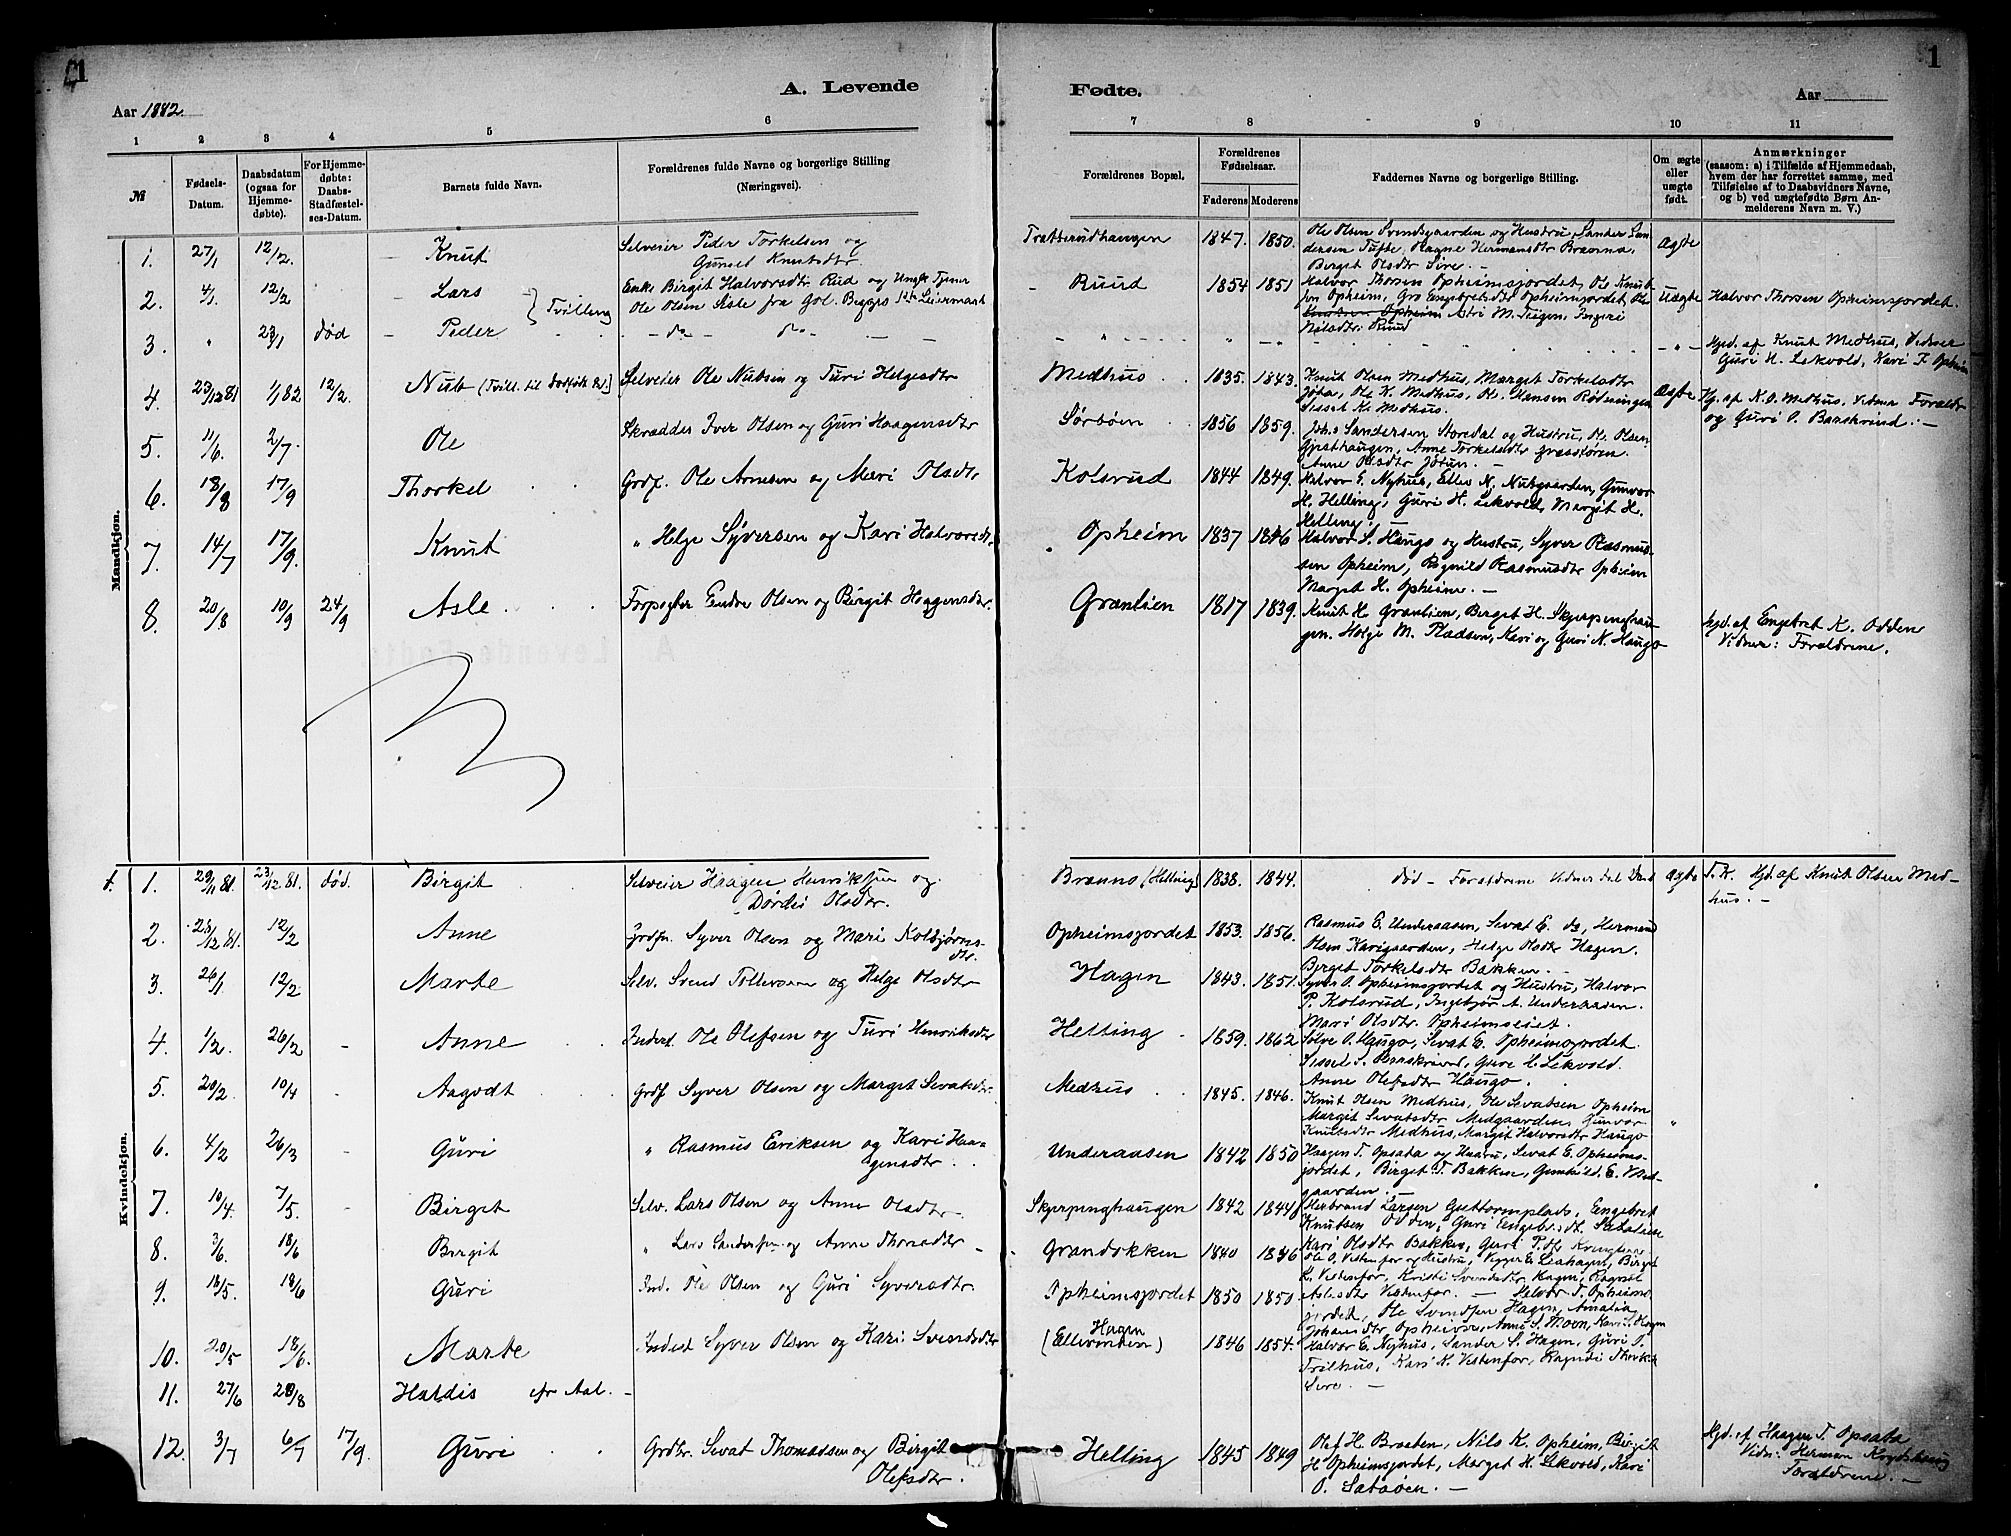 1
1
A. Levende
Fødte.
Aar 1882
Aar
1 2 3 4 5 6 7 8 9 10 11
№ Fødsels-Datum. Daabsdatum (ogsaa for Hjemmedøbte). For Hjemmedøbte: Daabs-Stadfæstelses-Datum. Barnets fulde Navn. Forældrenes fulde Navne og borgerlige Stilling (Næringsvei).
Forældrenes Bopæl. Forældrenes Fødselsaar. Faderens Moderens Faddernes Navne og borgerlige Stilling. Om ægte eller uægte født. Anmærkninger (saasom: a) i Tilfælde af Hjemmedaab, hvem der har forrettet samme, med Tilføielse af to Daabsvidners Navne, og b) ved uægtefødte Børn Anmelderens Navn m. V.)
Mandkjøn.
1. 27/1 12/2. Knut Selveier Peder Torkelsen og
Gunild Knutsdtr
1847. 1850. Ole Olsen Svendsgaarden og Hustru, Sander San-
dersen Tufte, Ragne Hermansdtr Brænna, Ægte
Birgit Olsdtr Sire. —
2. 4/1. 12/2 Lars Tvilling Enke Birgit Halvorsdtr Rud og Ungk. Tjener
Ole Olsen fra Gol. Begges 1ste Leiermaal
Ruud 1854 1851 Halvor Thorsen Opheimsjordet, Ole Knut-
sen Opheim, Gro Engebretsdtr Opheimsjordet, Ole Uægte Halvor Thorsen Opheimsjordet.
Knutsen Opheim Astri M. Teigen, Ingeri
Nilsdtr Ruud
3. " 23/1 død Peder — do — do —
Hjd. af Knut Medhus, Vidner
Guri H. Lekvold, Kari T. Opheim
4. 23/12 81 1/1 82 12/2. Nub (Tvill. til dødfødt) Selveier Ole Nubsen og Turi Helgesdtr
Medhus 1835. 1843. Knut Olsen Medhus, Margit Torkelsdtr Ægte Hj. af K. O. Medhus. Vidner Forældr
Ole K. Medhus, Ole Hansen Rødningen og Guri O. Barskrind. —
Sissel K. Medhus.
5. 11/6. 2/7. Ole Skrædder Iver Olsen og Guri Haagensdtr
Sørbøen 1856 1859. Johs Sandersen Storedal og Hustru, Ole Olsen
Anne Torkelsdtr
Anne Olsdtr Jøtun. —
6. 18/8 17/9 Thorkel Grdf. Ole Arnesen og Mari Olsdtr
Kolsrud 1844 1849. Halvor E. Nyhus, Elles N. Nubgaarden, Gunvor
H. Helling, Guri H. Lekvold, Margit H.
Helling. —
7. 14/7 17/9. Knut " Helge Syversen og Kari Halvorsdtr
Opheim 1837 1846 Halvor S. Haugo og Hustru, Syver Rasmus-
sen Opheim, Ragnild Rasmusdtr Opheim
Margit H. Opheim. —
8. 20/8 10/9 24/9 Asle Forpagter Endre Olsen og Birgit Haagensdtr.
Grønlien 1817 1839. Knut H. Grønlien, Birgit H. Skjerpinghau-
gen, Helge M. Pladsen, Kari og Guri N. Haugo
Hjd. af Engebret K. Odden
Vidner: Forældrene.
Kvindekjøn.
1. 29/11 81. 23/12 81. død. Birgit Selveier Haagen Henriksen og
Dordei Olsdtr.
Brenno (Helling) 1838. 1844. død — Forældrene Vidner Ægte T. K. Hjd. af Knut Olsen Med-
hus. —
2. 28/12 81. 12/2 Anne Jrdfr. Syver Olsen og Mari Kolbjørns-
dtr.
Opheimsjordet 1853. 1856. Rasmus E. Underaasen, Sevat E. do, Hermund
Olsen Karigaarden, Helge Olsdtr Hagen.
Birgit Torkelsdtr Bakken. —
3. 26/1 12/2 Marte Selv. Svend Tollevsen og Helge Olsdtr
Hagen 1843. 1851. Syver O. Opheimsjordet og Hustru, Halvor
P. Kolsrud, Ingebjør A. Underaasen.
Mari Olsdtr. Opheimseiet.
4. 1/2. 26/2 Anne Inderst Ole Olefsen og Turi Henriksdtr
Helling 1859. 1862 Sølve O. Haugo, Sevat E. Opheimsjordet.
Sissel S. Barskrind, Guri H. Lekvold.
Anne Olefsdtr Haugo.
5. 20/2. 10/4 Aagodt Grdf Syver Olsen og Margit Sevatsdtr.
Medhus 1845. 1846. Knut Olsen Medhus, Ole Sevatsen Opheim
Margit Sevatsdtr Medgaarden, Gunvor "
Knutsdtr Medhus, Margit Halvorsdtr Haugo
6. 4/2 26/3 Guri " Rasmus Eriksen og Kari Haa-
gensdtr
Underaasen 1842 1850 Haagen T. Opsata og Hustru, Sevat E. Opheims-
jordet, Birgit T. Bakken, Gunhild E. Med-
gaarden. —
7. 10/4. 7/5. Birgit Selv. Lars Olsen og Anne Olsdtr.
Skjerpinghaugen 1842 1844 Herbrand Larsen Guttormplads, Engebret
Knutsen Odden, Guri Engebr. dtr.
Kari Olsdtr Bakken, Guri
8. 3/6. 18/6 Birgit " Lars Sandersen og Anne Thoresdtr
Grandokken 1840 1846 Ole O. Vestenfor og Hustru, Vegger E. Leahagen, Birgit
L. Vestenfor, Kristi Svendsdtr Hagen, Ragnil
9. 18/5. 18/6 Guri Ind. Ole Olsen og Guri Syversdtr.
Opheimsjordet 1850 1850. Aslesdtr Vestenfor. — Halvor T. Opheims
jordet, Ole Svendsen Hagen, Amalia
Johansdtr Opheim, Anne S. Moen, Kari S. Hagen
10. 20/5 18/6. Marte Inderst Syver Olsen og Kari Svendsdtr
Hagen
1846 1854. Halvor E. Nyhus, Sander S. Hagen, Guri O.
Trilhus, Kari K. Vestenfor, Ragndi
Sire. —
11. 27/6 20/8 Haldis fr Aal. —
12. 3/7 6/7 17/9. Guri Grdbr. Sevat Thomassen og Birgit
Olefsdtr.
Helling 1845 1849 Olef H. Braaten, Nils K. Opheim, Birgit
H. Opheimsjordet, Margit H. Lekvold, Kari
O. Sataøen. —
Hjd. af Haagen T. Opsata
Vidn: Herman
Forældrene. —